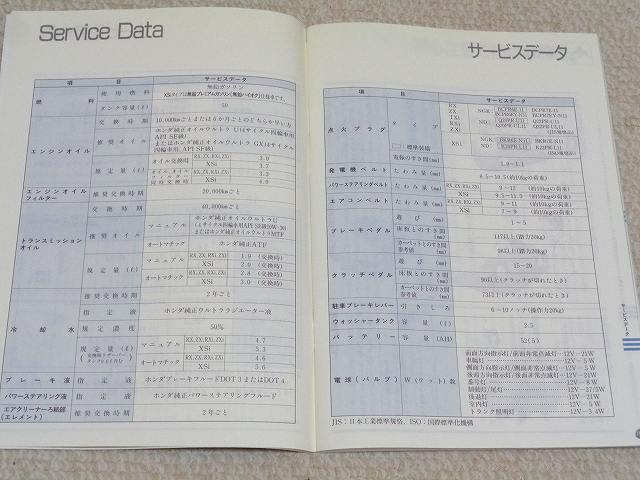 Service Data
項 目 サービスデータ
燃 料 使用燃料 無鉛ガソリン
XSiタイプは無鉛プレミアムガソリン(無鉛ハイオク)仕様車です。
タンク容量(ℓ) 50
エンジンオイル 交換時期 10,000kmごとまたは6か月ごとのどちらか早い方
推奨オイル ホンダ純正オイルウルトラ U(4サイクル四輪車用
API SE級)
またはホンダ純正オイルウルトラ GX(4サイクル
四輪車用、API SF級)
規定量(ℓ) オイル交換時 RX,ZX,RXi,ZXi 3.0
XSi 3.7
オイル、オイルフィルター同時交換時 RX,ZX,RXi,ZXi 3.3
XSi 4.0
エンジンオイル
フィルター 推奨交換時期 20,000kmごと
トランスミッション
オイル 交換時期 40,000kmごと
推奨オイル マニュアル ホンダ純正オイルウルトラU
(4サイクル四輪車用API SE級10W-30)
またはホンダ純正オイルウルトラMTF
オートマチック ホンダ純正ATF
規定量(ℓ) マニュアル RX,ZX,RXi,ZXi 1.9 (交換時)
XSi 2.0 (交換時)
オートマチック RX,ZX,RXi,ZXi 2.8 (交換時)
XSi 3.0 (交換時)
冷 却 水 推奨交換時期 2年ごと
指定液 ホンダ純正ウルトララジエーター液
規定濃度 50%
規定量(ℓ) マニュアル RX,ZX,RXi,ZXi 4.7
XSi 5.3
オートマチック RX,ZX,RXi,ZXi 4.6
XSi 5.6
ブレーキ液 指定液 ホンダブレーキフルードDOT 3またはDOT 4
パワーステアリング液 指定液 ホンダ純正パワーステアリングフルード
エアクリーナーろ紙部
(エレメント) 推奨交換時期 2年ごと
サービスデータ
項 目 サービスデータ
点火プラグ タイプ
RX
ZX
TXi
RXi
ZXi
NGK
ND
XSi NGK
ND
□標準装備
電極のすき間(mm) 1.0~1.1
発電機ベルト たわみ量(mm) 8.5~10.5(約10kgの荷重)
パワーステアリングベルト たわみ量(mm) RX,ZX,RXi,ZXi 9~12 (約10kgの荷重)
XSi 9.5~11.5 (約10kgの荷重)
エアコンベルト たわみ量(mm) RX,ZX,RXi,ZXi 9~11 (約10kgの荷重)
XSi 7~9 (約10kgの荷重)
ブレーキペダル 遊び(mm) 1~5
床板とのすき間
(mm) 117以上(踏力20kg)
カーペットとのすき間
参考値(mm) 98以上(踏力20kg)
クラッチペダル 遊び(mm) 15~20
床板とのすき間
(mm) 90以上(クラッチが切れたとき)
カーペットとのすき間
参考値(mm) 73以上(クラッチが切れたとき)
駐車ブレーキレバー 引きしろ 6~10ノッチ(操作力20kg)
ウォッシャータンク 容量(ℓ) 2.5
バッテリー 容量(AH) 52(5)
電球(バルブ) W(ワット)数
前面方向指示灯/前面非常点滅灯…12V-21W
車幅灯…12V-5W
側面方向指示灯/側面非常点滅灯…12V-5W
後面方向指示灯/後面非常点滅灯…12V-21W
番号灯…12V-8W
制動灯/尾灯…12V-27/5W
後退灯…12V-21W
室内灯…12V-5W
トランク照明灯…12V-3.4W
JIS:日本工業標準規格、ISO:国際標準化機構
サービスデータ